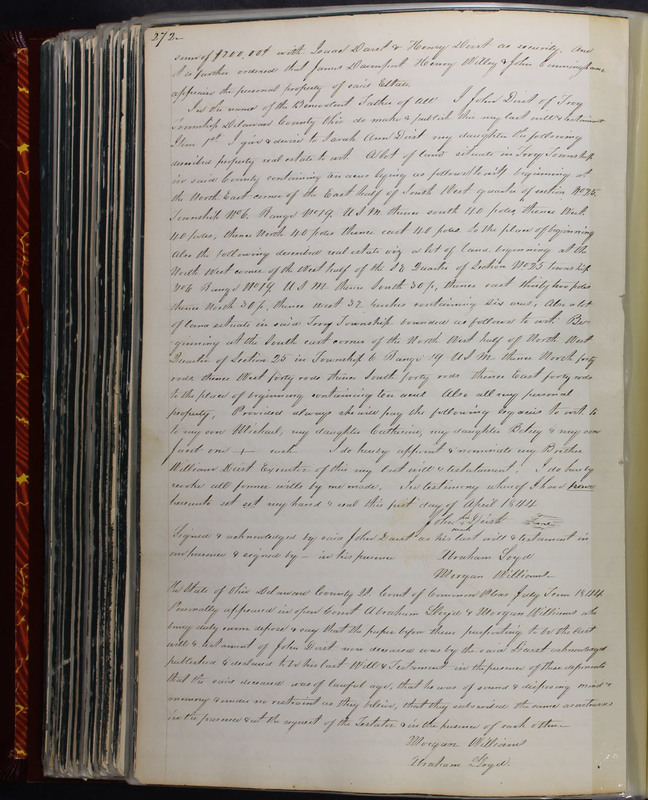 272
sum of $200.00 with Isaac Darst & Henry Dirst as security. And
it is further ordered that James Davenport Henry Willey & John Cunningham
appraise the personal property of said Estate.
In the name of the Benevolent Father of all I John Dirst of Troy
Township Delaware County Ohio do make & publish this my last will & testament
Item 1st I give & devise to Sarah Ann Dirst my daughter the following
described property real estate to wit. A lot of land situate in Troy Township
in said County containing ten acres lying as follows to wit, beginning at
the North East corner of the East half of South West quarter of section No 25,
Township No 6, Range No 19, U S M. thence south 40 poles, thence West
40 poles, thence North 40 poles thence east 40 poles to the place of beginning
Also the following described real estate viz a lot of land beginning at the
North West corner of the West half of the S E Quarter of Section No 25 township
No 6 Range No 19 U S M. thence South 30 p, thence east thirty two poles
thence North 30 p, thence west 32 perches containing six acres, Also a lot
of land situate in said Troy Township bounded as follows to wit. Be-
ginning at the South east corner of the North West half of North West
Quarter of Section 25 in Township 6 Range 19 U S M. thence North forty
rods thence West forty rods thence South forty rods thence East forty rods
to the place of beginning containing ten acres Also all my personal
property, Provided always she will pay the following legacies to wit to
to my son Michael, my daughter Catherine, my daughter Betsy & my son
one each. I do hereby appoint & nominate my Brother
William Dirst Executor of this my last will & testament. I do hereby
revoke all former wills by me made. In testimony whereof I have
hereunto set my hand & seal this first day of April 1844
John his mark Dirst Seal
Signed & acknowledged by said John Darst as his last will & testament in
our presence & signed by in his presence Abraham Loyd
Morgan Williams
The State of Ohio Delaware County SS. Court of Common Pleas July Term 1844
Personally appeared in open Court Abraham Lloyd & Morgan Williams who
being duly sworn depose & say that the paper before them purporting to be the last
will & testament of John Darst now deceased was by the said Darst acknowledged
published & declared to be his last Will & Testament in the presence of these deponents
that the said deceased was of lawful age, that he was of sound & disposing mind &
memory & under no restraint as they believe, that they subscribed the same as witnesses
in the presence & at the request of the Testator & in the presence of each other
Morgan Williams
Abraham Lloyd.